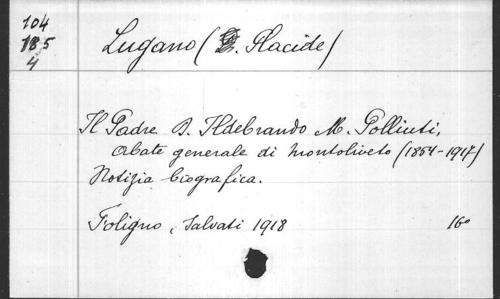 104
185
4
Lugano (D. Placide)
Il Padre D. Ildebrando M. Polliuti,
Abate generale di Montoliveto (1854-1917)
Notizia biografica.
Foligno, Salvati 1918 16º